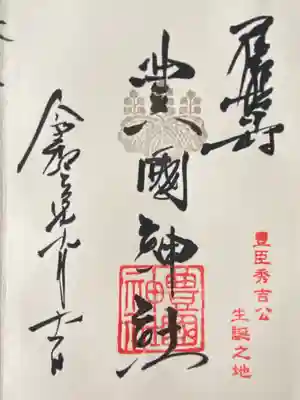 豊臣秀吉公
生誕之地
豊國神社
豊國神社
令和元年九月十一日